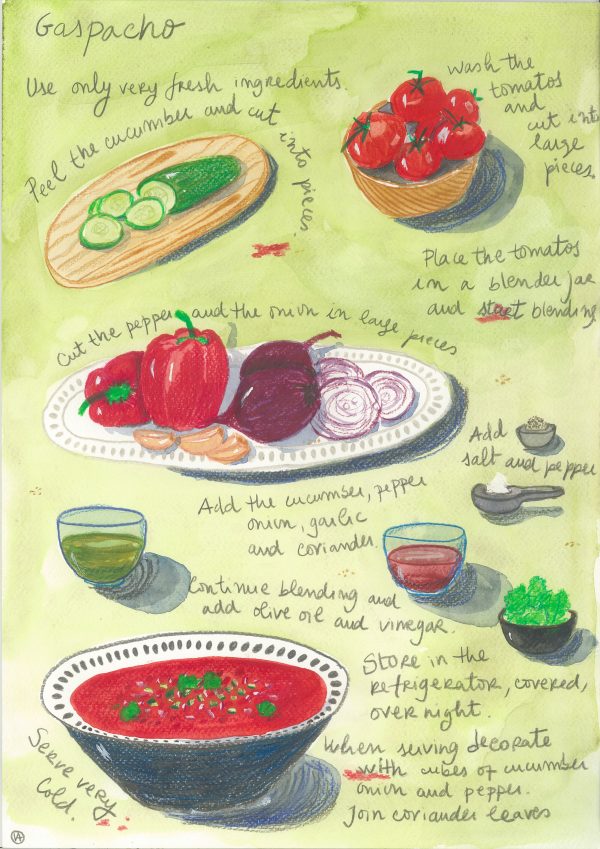 Gaspacho
Use only very fresh ingredients.
Peel the cucumber and cut into pieces.
Wash the
tomatos
and
cut into
large
pieces.
Place the tomatos
in a blender jar
and start blending
Cut the pepper and the onion in large pieces
Add
salt and pepper
Add the cucumber, pepper
onion, garlic
and coriander.
Continue blending and
add olive oil and vinegar.
Store in the
refrigerator, covered,
over night.
When serving decorate
with cubes of cucumber
onion and pepper.
Join coriander leaves
Serve very
cold.